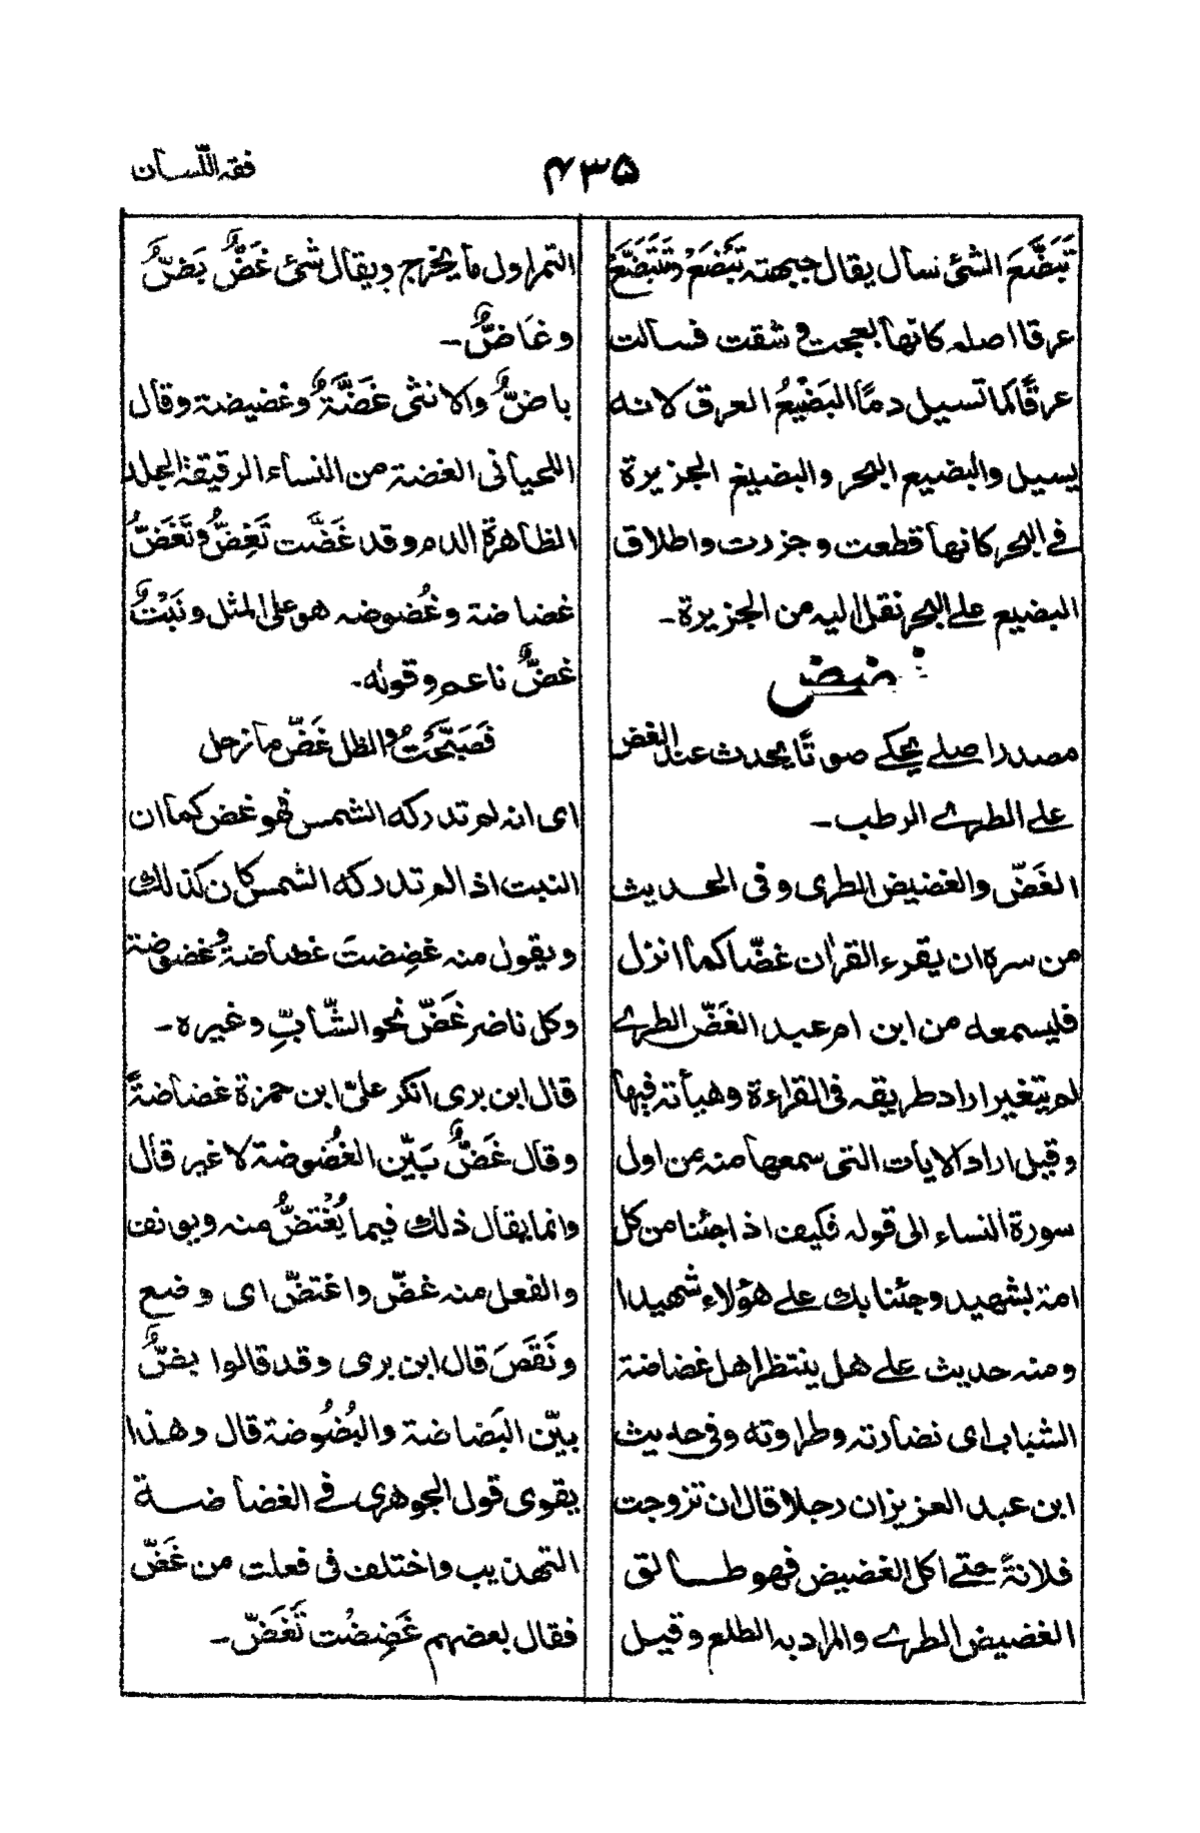 فقہ اللّسان
۴۳۵
تَبَضَّعَ الشئ نسال يقال جبهته تَبْضَعُ وتَتَبَضَّعُ
عرقا اصله كانها بعجت و شقت فسالت
عرقًا كما تسيل دمًا البَضْيعُ العرق لانه
يسيل والبضيع البحر والبضيغ الجزيرة
فے البحر كانها قطعت وجزرت واطلاق
البضيع علے البحر نقل اليه من الجزيرة۔
مصدر اصلے يحكے صوتًا يحدث عند الغض
علے الطرے الرطب۔
الغَضّ والغضيض الطرى وفى الحديث
من سره ان يقرء القرأن غضّا كما انزل
فليسمعه من ابن ام عبد الغَضّ الطرے
لم يتغير اراد طريقه فى القراءة وهيأته فيها
وقيل اراد الايات التى سمعها منه من اول
سورة النساء الى قوله فكيف اذا جئنا من كل
امة بشهيد وجئنا بك علے هؤلاء شهيدا
ومنه حديث علے هل ينتظر اهل غضاضة
الشباب اى نضارته وطراوته وفى حديث
ابن عبد العزيز ان رجلا قال ان تزوجت
فلانةً حتے اكل الغضيض فهو طالق
الغضيض الطرے والمراد به الطلع وقيل
التمر اول ما يخرج ويقال شئ غَضٌّ بَضٌّ
وغَاضٌّ۔
باضٌّ والانثى غَضَّةٌ وغضيضة وقال
اللحيانى الغضة من النساء الرقيقة الجلد
الظاهرة الدم وقد غَضَّت تَغِضُّ وتَغَضُّ
غضاضة وغُضوضه هو على المثل ونَبْتٌ
غضٌّ ناعم وقوله۔
فَصَبَّحَتْ والظل غَضّ ما زحل
اى انه لم تدركه الشمس فهو غض كما ان
النبت اذا لم تدركه الشمس كان كذلك
ويقول منه غضِضتَ غضاضةً وغضوضة
وكل ناضر غَضّ نحو الشّابِّ وغيره۔
قال ابن برى انكر علىّ ابن حمزة غضاضةً
وقال غَضٌّ بَيّن الغُضُوضة لا غير قال
وانما يقال ذلك فيما يُغْتضُّ منه ويونف
والفعل منه غضّ واغتضّ اى وضع
ونَقَصَ قال ابن برى وقد قالوا بضٌّ
بيّن البَضاضة والبُضُوضة قال وهذا
يقوى قول الجوهرى فے الغضاضة
التهذيب واختلف فى فعلت من غَضّ
فقال بعضهم غَضِضْت تَغَضّ۔